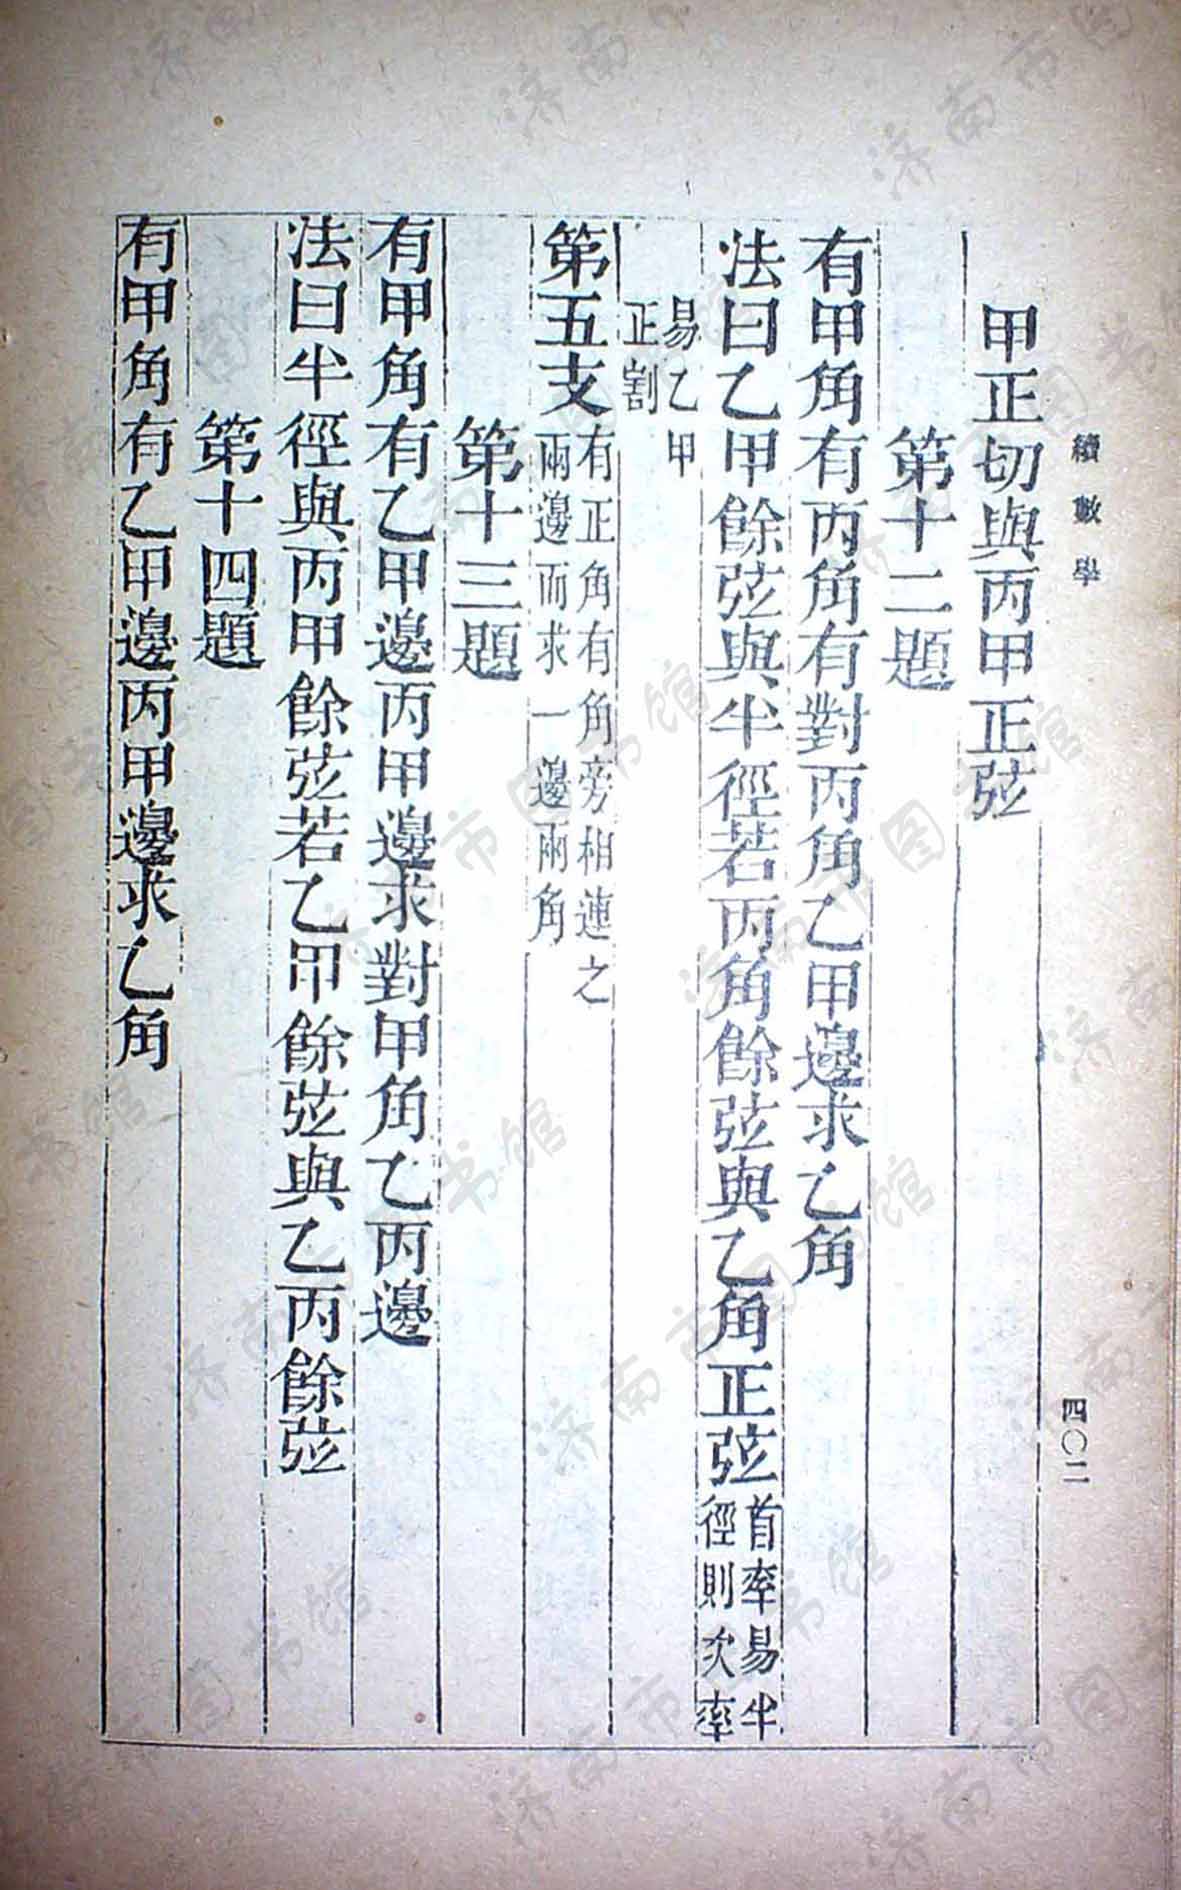 續數學
四〇二
甲正切與丙甲正弦
第十二題
有甲角有丙角有對丙角乙甲邊求乙角
法曰乙甲餘弦與半徑若丙角餘弦與乙角正弦
首率易半
徑則次率
易乙甲
正割
第五支
有正角有角旁相連之
兩邊而求一邊兩角
第十三題
有甲角有乙甲邊丙甲邊求對甲角乙丙邊
法曰半徑與丙甲餘弦若乙甲餘弦與乙丙餘弦
第十四題
有甲角有乙甲邊丙甲邊求乙角
济南市图书馆